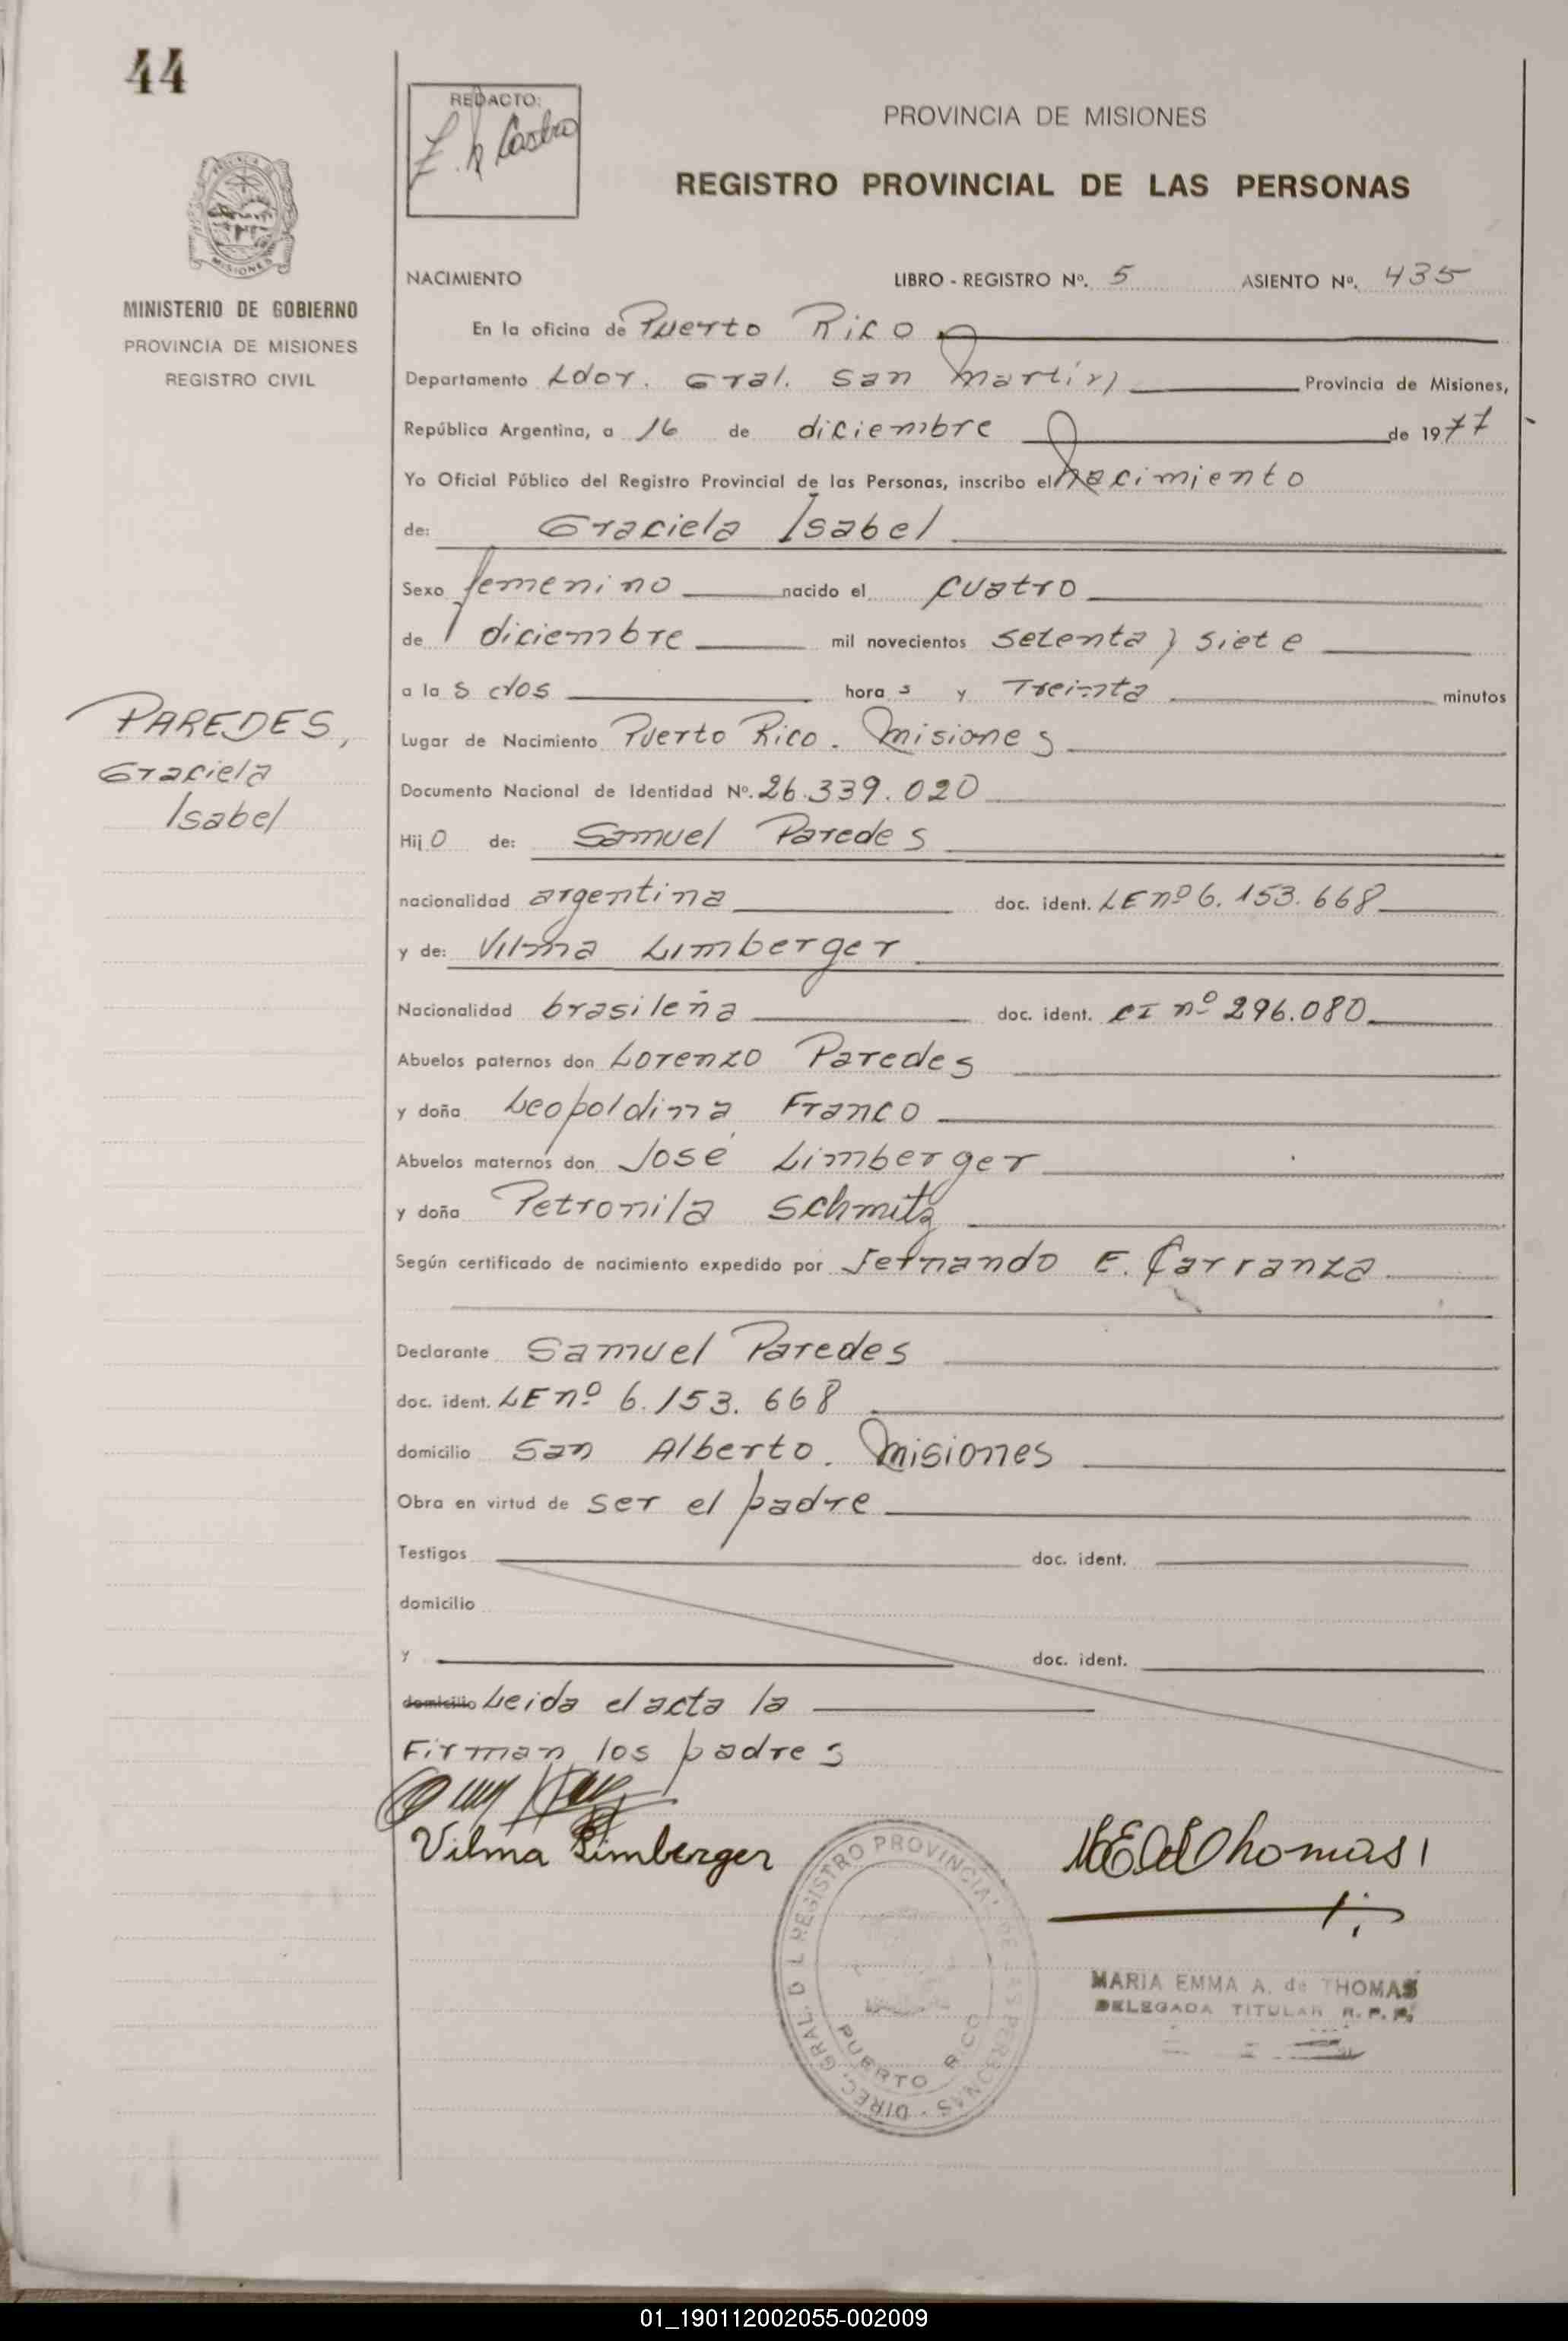 44
REDACTO:
Castro
PROVINCIA DE MISIONES
REGISTRO PROVINCIAL DE LAS PERSONAS
MISIONES
MINISTERIO DE GOBIERNO
PROVINCIA DE MISIONES
REGISTRO CIVIL
NACIMIENTO LIBRO - REGISTRO Nº. 5 ASIENTO Nº. 435
En la oficina de Puerto Rico
Departamento Ldor. Gral. San Martín Provincia de Misiones,
República Argentina, a 16 de diciembre de 1977
Yo Oficial Público del Registro Provincial de las Personas, inscribo el nacimiento
de: Graciela Isabel
Sexo femenino nacido el cuatro
de diciembre mil novecientos setenta y siete
a las dos horas y Treinta minutos
PAREDES,
Graciela
Isabel
Lugar de Nacimiento Puerto Rico. Misiones
Documento Nacional de Identidad Nº. 26.339.020
Hijo de: Samuel Paredes
nacionalidad argentina doc. ident. LE nº 6.153.668
y de: Vilma Limberger
Nacionalidad brasileña doc. ident. CI nº 296.080
Abuelos paternos don Lorenzo Paredes
y doña Leopoldina Franco
Abuelos maternos don José Limberger
y doña Petronila Schmitz
Según certificado de nacimiento expedido por Fernando E. Carranza
Declarante Samuel Paredes
doc. ident. LE nº 6.153.668
domicilio San Alberto. Misiones
Obra en virtud de ser el padre
Testigos doc. ident.
domicilio
y doc. ident.
domicilio Leida el acta la
Firman los padres
Vilma Limberger
DIREC. GRAL. DEL REGISTRO PROVINCIAL DE LAS PERSONAS -
PUERTO RICO
MARIA EMMA A. de THOMAS
DELEGADA TITULAR R. P. P.
01_190112002055-002009